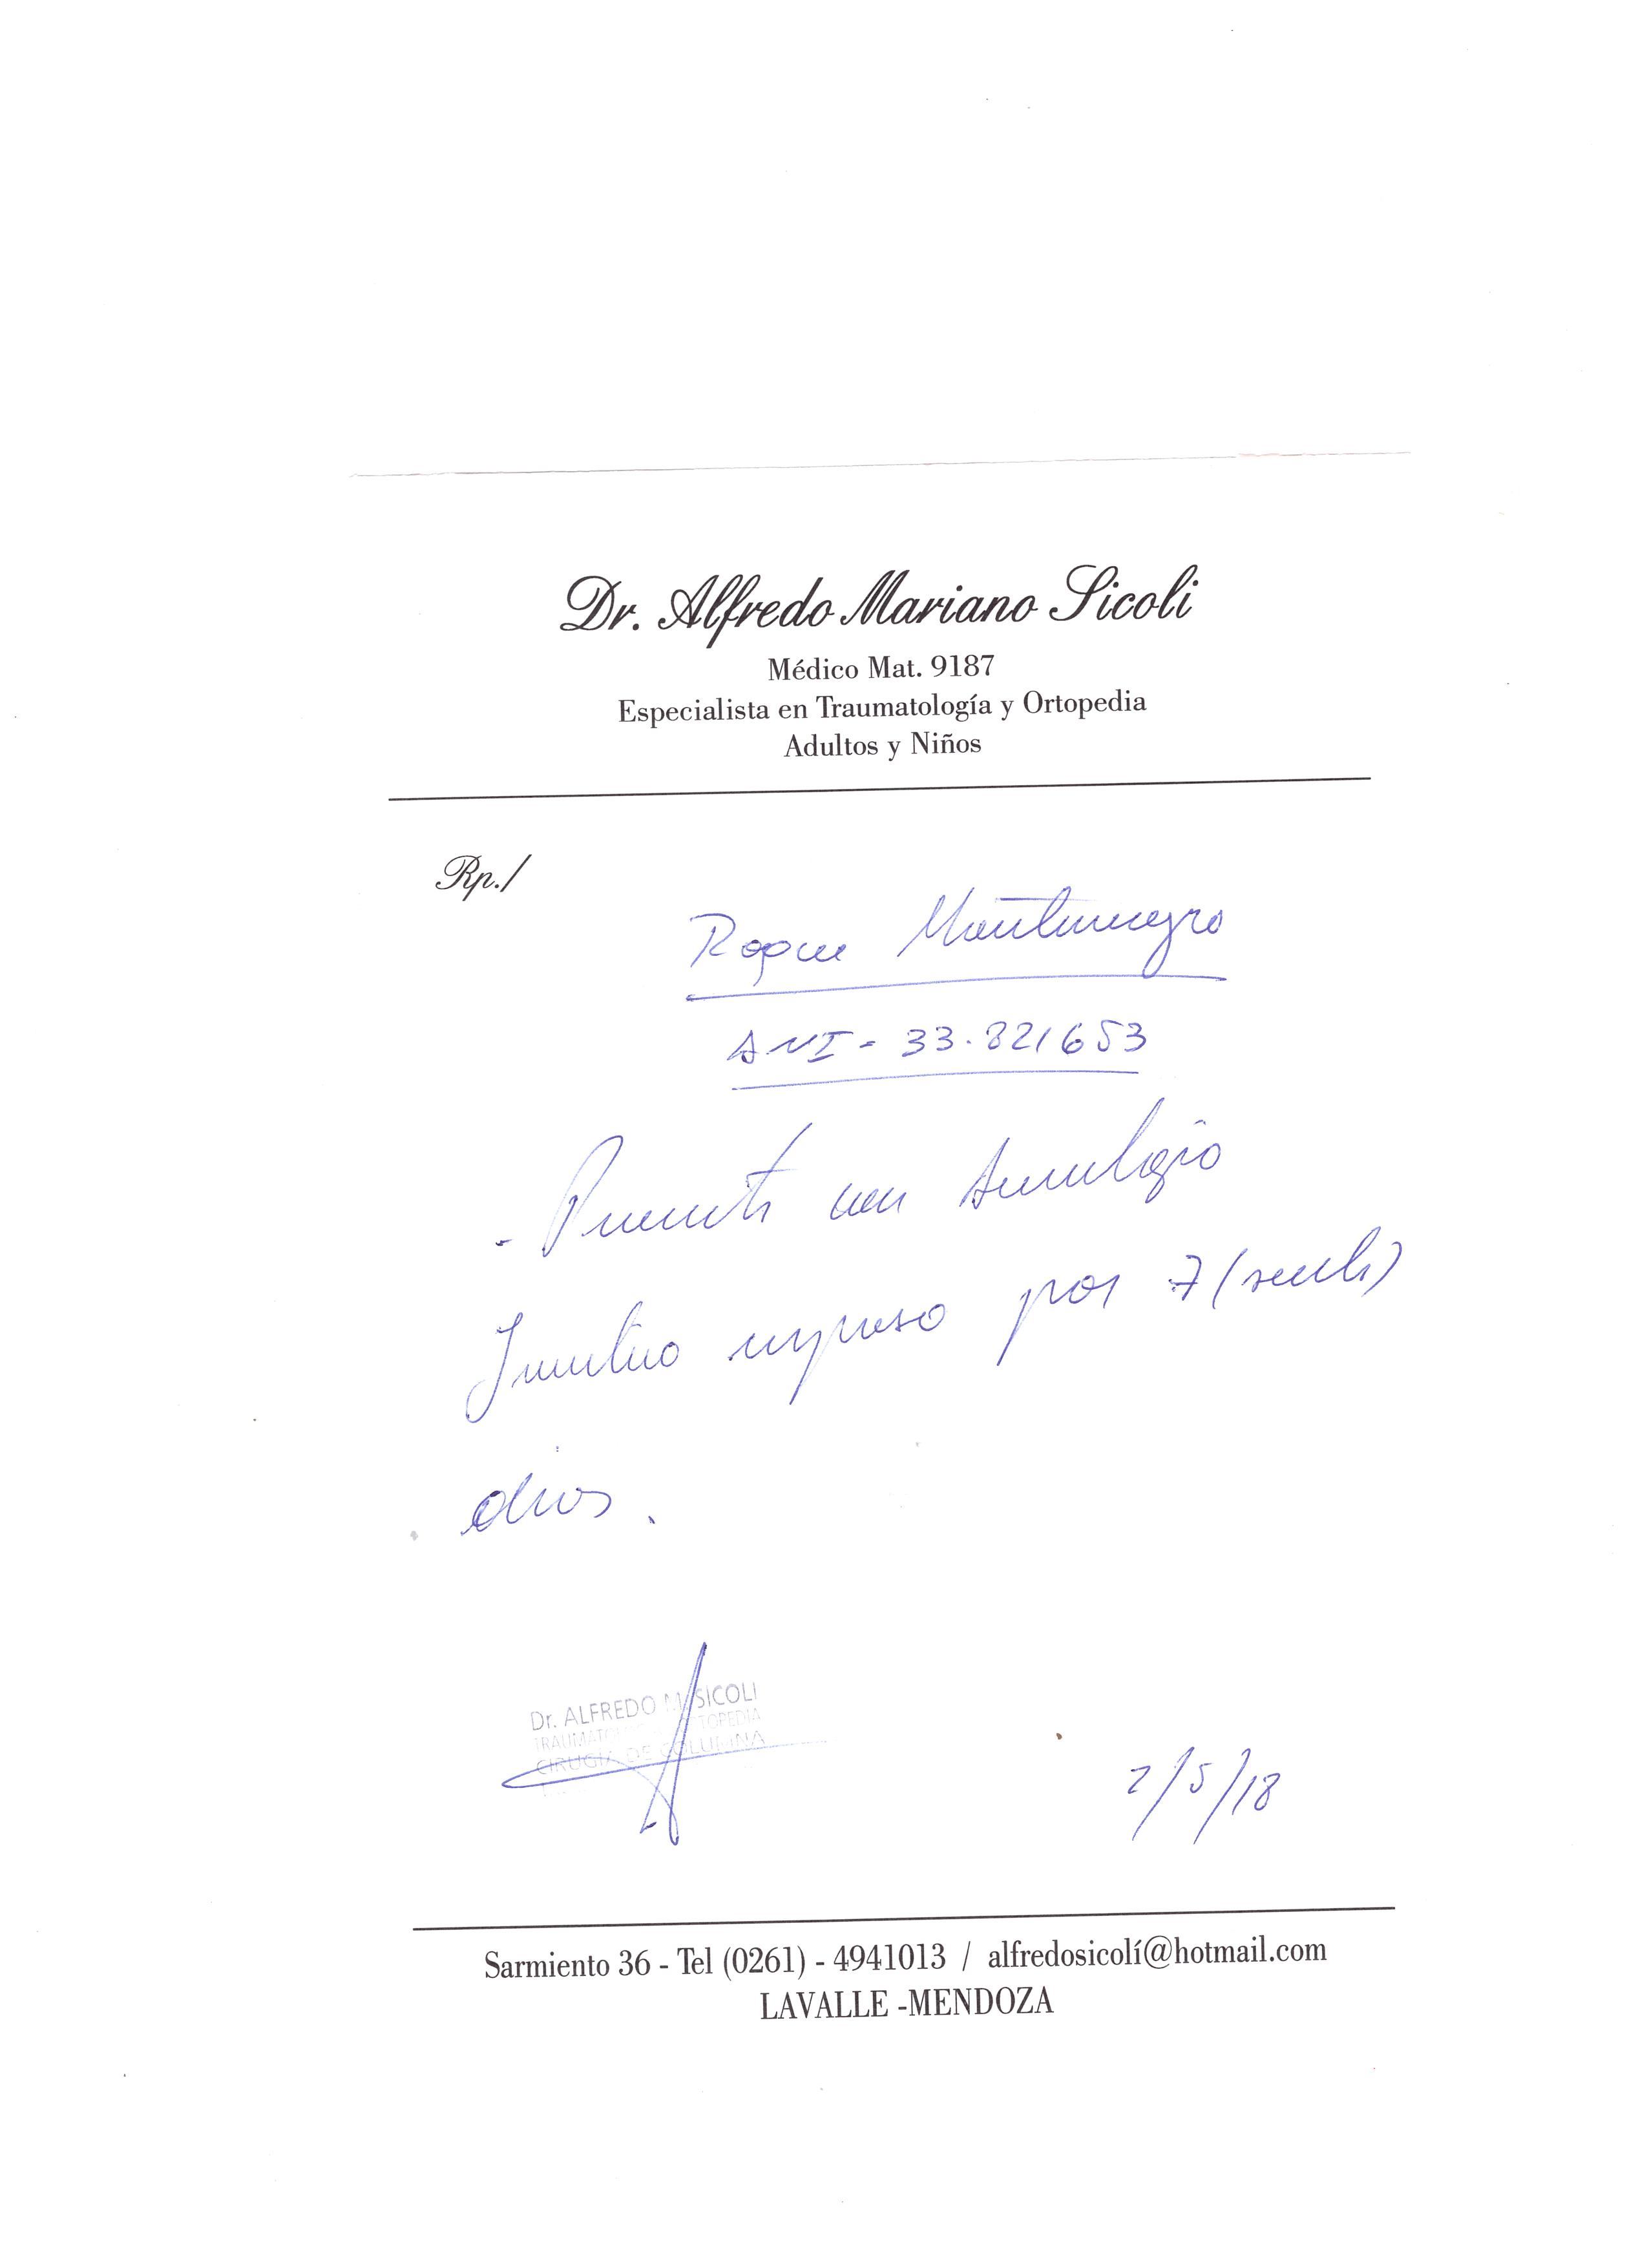 Dr. Alfredo Mariano Sicoli
Médico Mat. 9187
Especialista en Traumatología y Ortopedia
Adultos y Niños
Rp./
Roque Montenegro
DNI - 33.821653
- Presenta
reposo por 7 (siete)
días.
Dr. ALFREDO M. SICOLI
CIRUGIA DE COLUMNA
2/5/18
Sarmiento 36 - Tel (0261) - 4941013 / alfredosicolí@hotmail.com
LAVALLE -MENDOZA